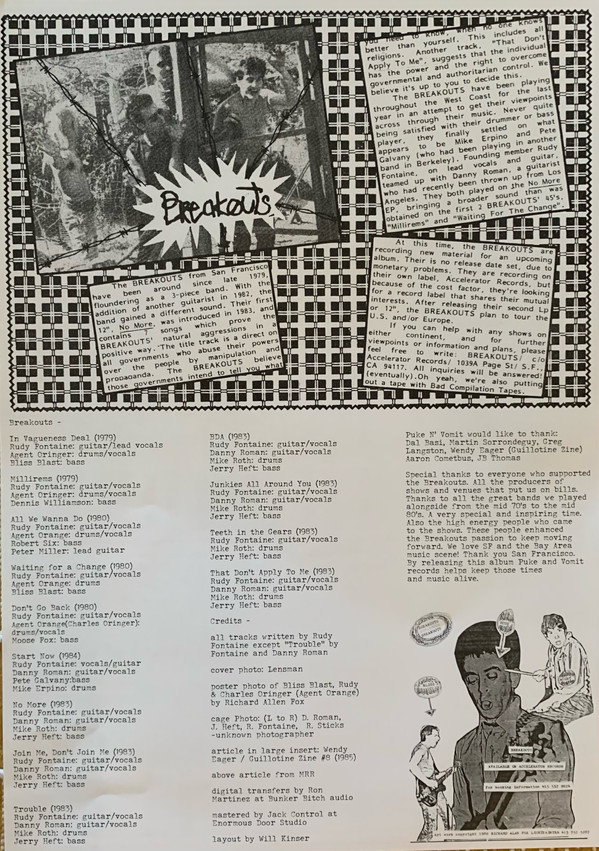 Breakouts
The BREAKOUTS from San Francisco
have been around since late 1979,
floundering as a 3-piece band. With the
addition of another guitarist in 1982, the
band gained a different sound. Their first
12", No More, was introduced in 1983, and
contains 7 songs which prove the
BREAKOUTS' natural aggressions in a
positive way. "The title track is a direct on
all governments who abuse their powers
over the people by manipulation and
propaganda. The BREAKOUTS believe
those governments intend to tell you what
you need to know, when no one knows
better than yourself. This includes all
religions. Another track, "That Don't
Apply To Me", suggests that the individual
has the power and the right to overcome
governmental and authoritarian control. We
believe it's up to you to decide this.
The BREAKOUTS have been playing
throughout the West Coast for the last
year in an attempt to get their viewpoints
across through their music. Never quite
being satisfied with their drummer or bass
player, they finally settled on what
appears to be Mike Erpino and Pete
Galvany (who had been playing in another
band in Berkeley). Founding member Rudy
Fontaine, on lead vocals and guitar,
teamed up with Danny Roman, a guitarist
who had recently been thrown up from Los
Angeles. They both played on the No More
EP, bringing a broader sound than was
obtained on the first 2 BREAKOUTS' 45's,
"Millirems" and "Waiting For The Change".
At this time, the BREAKOUTS are
recording new material for an upcoming
album. Their is no release date set, due to
monetary problems. They are recording on
their own label, Accelerator Records, but
because of the cost factor, they're looking
for a record label that shares their mutual
interests. After releasing their second Lp
or 12", the BREAKOUTS plan to tour the
U.S. and/or Europe.
If you can help with any shows on
either continent, and for further
viewpoints or information and plans, please
feel free to write: BREAKOUTS/ c/o
Accelerator Records/ 1039A Page St/ S.F.,
CA 94117. All inquiries will be answered!
(eventually).Oh yeah, we're also putting
out a tape with Bad Compilation Tapes.
Breakouts -
In Vagueness Deal (1979)
Rudy Fontaine: guitar/lead vocals
Agent Oringer: drums/vocals
Bliss Blast: bass
Millirems (1979)
Rudy Fontaine: guitar/vocals
Agent Oringer: drums/vocals
Dennis Williamson: bass
All We Wanna Do (1980)
Rudy Fontaine: guitar/vocals
Agent Orange: drums/vocals
Robert Six: bass
Peter Miller: lead guitar
Waiting for a Change (1980)
Rudy Fontaine: guitar/vocals
Agent Orange: drums
Bliss Blast: bass
Don't Go Back (1980)
Rudy Fontaine: guitar/vocals
Agent Orange(Charles Oringer):
drums/vocals
Moose Fox: bass
Start Now (1984)
Rudy Fontaine: vocals/guitar
Danny Roman: guitar/vocals
Pete Galvany:bass
Mike Erpino: drums
No More (1983)
Rudy Fontaine: guitar/vocals
Danny Roman: guitar/vocals
Mike Roth: drums
Jerry Heft: bass
Join Me, Don't Join Me (1983)
Rudy Fontaine: guitar/vocals
Danny Roman: guitar/vocals
Mike Roth: drums
Jerry Heft: bass
Trouble (1983)
Rudy Fontaine: guitar/vocals
Danny Roman: guitar/vocals
Mike Roth: drums
Jerry Heft: bass
BDA (1983)
Rudy Fontaine: guitar/vocals
Danny Roman: guitar/vocals
Mike Roth: drums
Jerry Heft: bass
Junkies All Around You (1983)
Rudy Fontaine: guitar/vocals
Danny Roman: guitar/vocals
Mike Roth: drums
Jerry Heft: bass
Teeth in the Gears (1983)
Rudy Fontaine: guitar/vocals
Mike Roth: drums
Jerry Heft: bass
That Don't Apply To Me (1983)
Rudy Fontaine: guitar/vocals
Danny Roman: guitar/vocals
Mike Roth: drums
Jerry Heft: bass
Credits -
all tracks written by Rudy
Fontaine except "Trouble" by
Fontaine and Danny Roman
cover photo: Lensman
poster photo of Bliss Blast, Rudy
& Charles Oringer (Agent Orange)
by Richard Allen Fox
cage Photo: (L to R) D. Roman,
J. Heft, R. Fontaine, R. Sticks
-unknown photographer
article in large insert: Wendy
Eager / Guillotine Zine #8 (1985)
above article from MRR
digital transfers by Ron
Martinez at Bunker Bitch audio
mastered by Jack Control at
Enormous Door Studio
layout by Will Kinser
Puke N' Vomit would like to thank:
Dal Basi, Martin Sorrondeguy, Greg
Langston, Wendy Eager (Guillotine Zine)
Aaron Cometbus, JB Thomas
Special thanks to everyone who supported
the Breakouts. All the producers of
shows and venues that put us on bills.
Thanks to all the great bands we played
alongside from the mid 70's to the mid
80's. A very special and inspiring time.
Also the high energy people who came
to the shows. These people enhanced
the Breakouts passion to keep moving
forward. We love SF and the Bay Area
music scene! Thank you San Francisco.
By releasing this album Puke and Vomit
records helps keep those times
and music alive.
BREAKOUTS
AVAILABLE ON ACCELERATOR RECORDS
For booking information 415